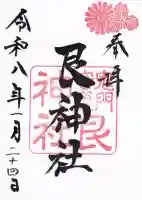 奉拝
艮神社
令和八年一月二十四日